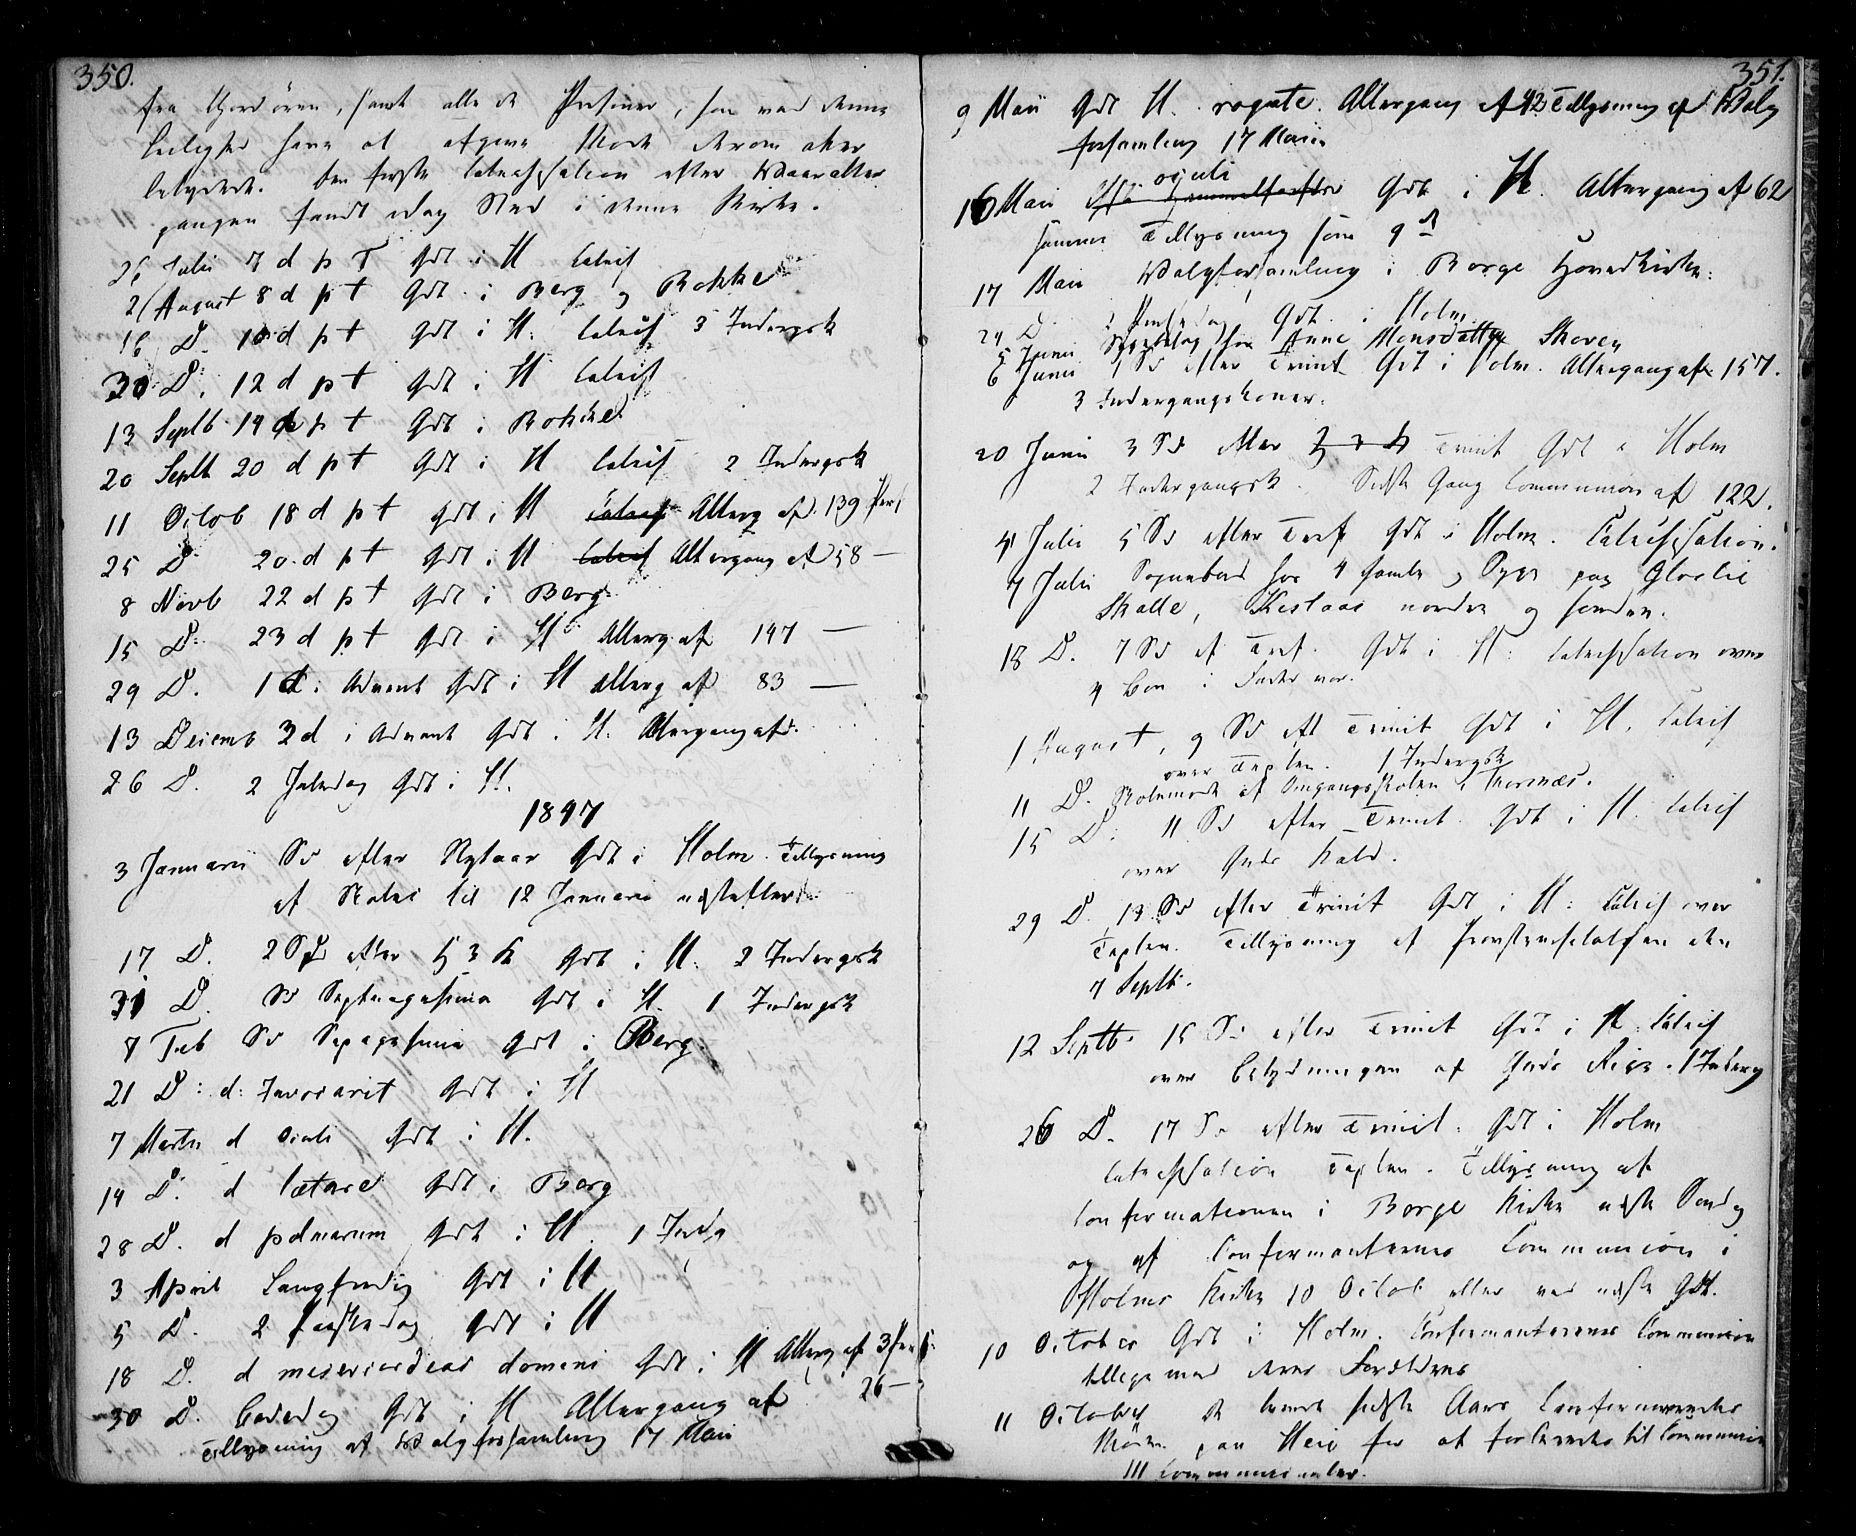 350.
fra Gierdören, samt alle de Personer, som ved denne
Leilighed have at afgive Møde derom
betydet. Den første Catechisation efter Vaaralter
gangen fandt idag Sted i denne Kirke.
26 Julii 7 d p T Gdt i H Catech
2 August 8 d p t Gdt i Berg og Bokke
16 D. 10 d p t Gdt i H. Catech 3 Indergsk
30 D. 12 d p t Gdt i H Catech
13 Septb 14 d p t Gdt i Bokke
20 Septb 20 d p t Gdt i H Catech 2 Indergsk
11 Octob 18 d p t Gdt i H Catech Alterg af 139 Pers
25 D 20 d p t Gdt i H Catech Altergang af 58 —
8 Novb 22 d p t Gdt i Berg
15 D. 23 d p t Gdt i H Alterg af 147 —
29 D. 1 d i Advent Gdt i H Alterg af 83 —
13 Decemb 3 d i Advent Gdt i H. Altergang af
26 D. 2 Juledag Gdt i H.
1847
3 Januarii Sd efter Nytaar Gdt i Holm. Tillysning
af Skolen til 12 Januarii næstefter
17 D. 2 Sd efter H 3 K Gdt i H. 2 Indergsk
31 D. Sd Septuagesima Gdt i H. 1 Indergsk
7 Feb Sd Sexagesima Gdt i Berg
21 D: d: Invocavit Gdt i H
7 Martii d Oculi Gdt i H.
14 D. d lætare Gdt i Berg
28 D. d palmarum Gdt i H. 1 Indg
3 April Langfredag Gdt i H
5 D. 2 Paaskedag Gdt i H
18 D. d misericordias domini Gdt i H Alterg af 3 Pers.
30 D. Bededag Gdt i H Altergang af 26 —
Tillysning af Valgforsamling 17 Maii
351.
9 Maii Gdt H. rogate. Altergang af 42 Tillysning af Valg
forsamling 17 Maii
16 Maii Gdt i H. Altergang af 62
samme Tillysning som 9 d
17 Maii Valgforsamling i Borge Hovedkirke.
24 D. 2 Pintsedag Gdt i Holm
5 Junii for Anne Monsdatter Skoven
6 Junii 1 Sd efter Trinit Gdt i Holm. Altergang af 157.
3 Indergangskoner.
20 Junii 3 Sd efter H 3 K Trinit Gdt i Holm
2 Indergangsk. Sidste Gang Communion af 122.
4 Julii 5 Sd efter Tref Gdt i Holm. Catechisation.
7 Julii Sognebud hos 4 gamle og Syge paa Glorlie
Skalle, Kestaas nordre og søndre.
18 D. 7 Sd ef Tref. Gdt i H. Catechisation over
4 Bøn i Fader vor.
1 August, 9 Sd eft Trinit Gdt i H. Catech
over Texten. 1 Indergsk
11 D. Skolemøde af Omgangsskolen i Thornæs.
15 D. 11 Sd efter Trinit. Gdt i H. Catech
over Guds Kald.
29 D. 13 Sd efter Trinit Gdt i H: Catech over
Texten. Tillysning af den
7 Septb.
12 Septb. 15 Sd efter Trinit Gdt i H. Catech
over Betydningen af Guds Rige. 1 Inderg
26 D. 17 Sd efter Trinit. Gdt i Holm
Catechisation Texten. Tillysning af
Confirmationen i Borge Kirke næste Søndag
og af Confirmanternes Communion i
Holms Kirke 10 Octob eller ved næste Gdt.
10 October Gdt i Holm. Confirmanternes Communion
tillige med deres Forældres
11 October de sidste Aars Confirmerede
Møde paa Heie for at forberedes til Communion
111 Communicanter.